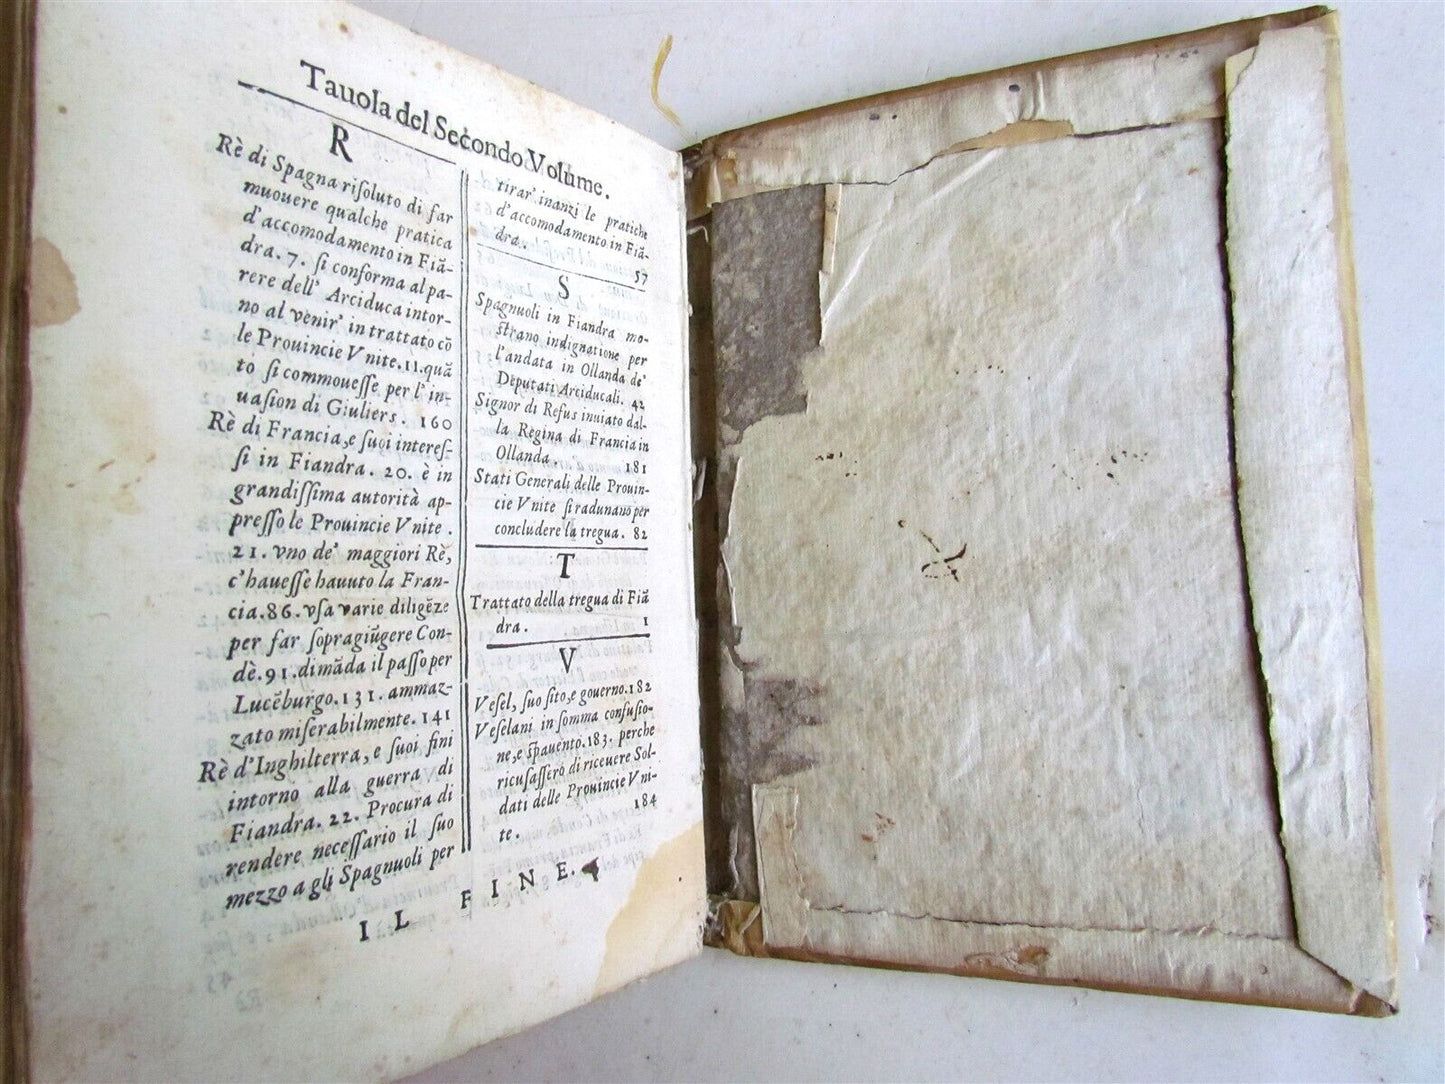 Tauola del Secondo Volume.
R
Rè di Spagna risoluto di far
muouere qualche pratica
d'accomodamento in Fiã-
dra. 7. si conforma al pa-
rere dell' Arciduca intor-
no al venir' in trattato cõ
le Prouincie Vnite. 11. quã
to si commouesse per l' in-
uasion di Giuliers. 160
Rè di Francia, e suoi interes-
si in Fiandra. 20. è in
grandissima autorità ap-
presso le Prouincie Vnite.
21. vno de' maggiori Rè,
c'hauesse hauuto la Fran-
cia. 86. vsa varie diligẽze
per far sopragiũgere Con-
dè. 91. dimãda il passo per
Lucẽburgo. 131. ammaz-
zato miserabilmente. 141
Rè d'Inghilterra, e suoi fini
intorno alla guerra di
Fiandra. 22. Procura di
rendere necessario il suo
mezzo a gli Spagnuoli per
tirar' inanzi le pratiche
d'accomodamento in Fiã-
dra. 57
S
Spagnuoli in Fiandra mo-
strano indignatione per
l'andata in Ollanda de'
Deputati Arciducali. 42
Signor di Refus inuiato dal-
la Regina di Francia in
Ollanda. 181
Stati Generali delle Prouin-
cie Vnite si radunano per
concludere la tregua. 82
T
Trattato della tregua di Fiã
dra. 1
V
Vesel, suo sito, e gouerno. 182
Veselani in somma confusio-
ne, e spauento. 183. perche
ricusassero di riceuere Sol-
dati delle Prouincie Vni-
te. 184
IL FINE.